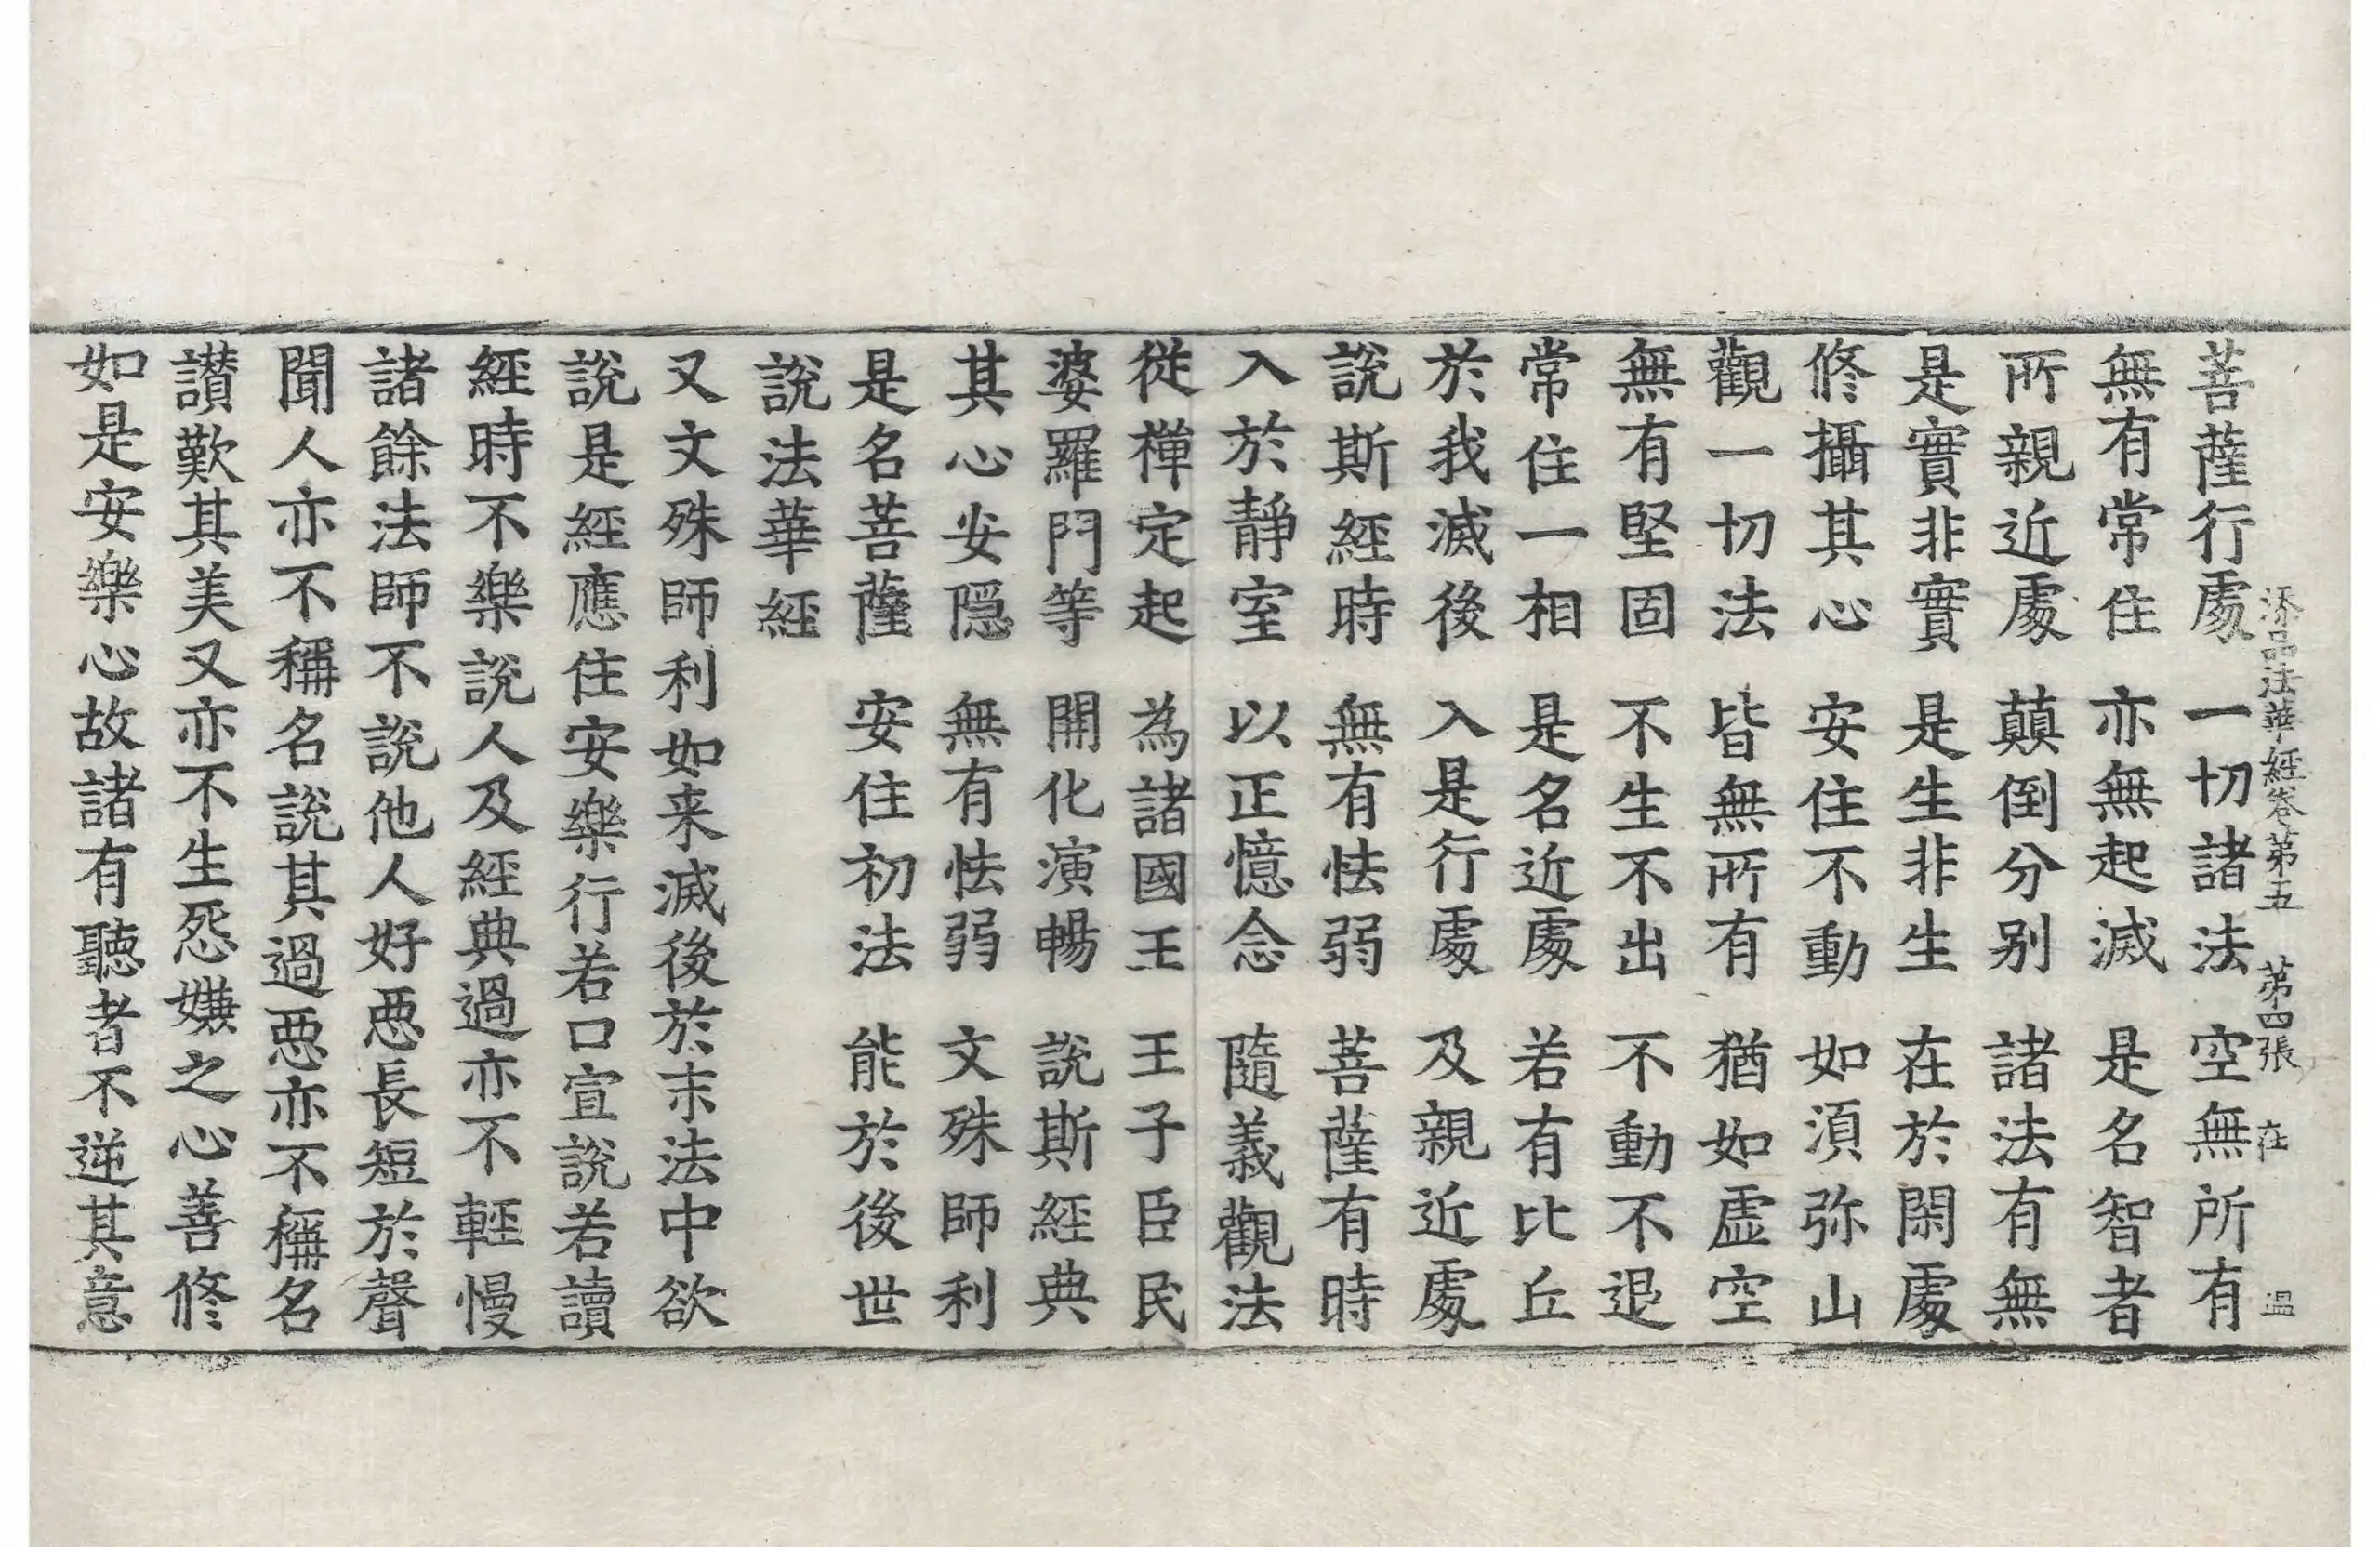 添品法華經卷第五　第四張　在　温
菩薩行處　一切諸法　空無所有
無有常住　亦無起滅　是名智者
所親近處　顛倒分别　諸法有無
是實非實　是生非生　在於閑處
修攝其心　安住不動　如湏弥山
觀一切法　皆無所有　猶如虚空
無有堅固　不生不出　不動不退
常住一相　是名近處　若有比丘
於我滅後　入是行處　及親近處
說斯經時　無有怯弱　菩薩有時
入於靜室　以正憶念　隨義觀法
從禪定起　為諸國王　王子臣民
婆羅門等　開化演暢　說斯經典
其心安隱　無有怯弱　文殊師利
是名菩薩　安住初法　能於後世
說法華經
又文殊師利如来滅後於末法中欲
說是經應住安樂行若口宣說若讀
經時不樂說人及經典過亦不輕慢
諸餘法師不說他人好惡長短於聲
聞人亦不稱名說其過惡亦不稱名
讃歎其美又亦不生怨嫌之心善修
如是安樂心故諸有聽者不逆其意